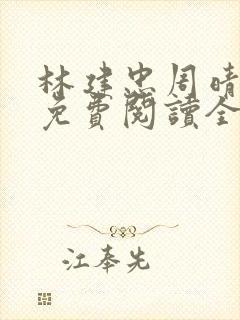 林建忠周晴
免費閱讀全
江奉先